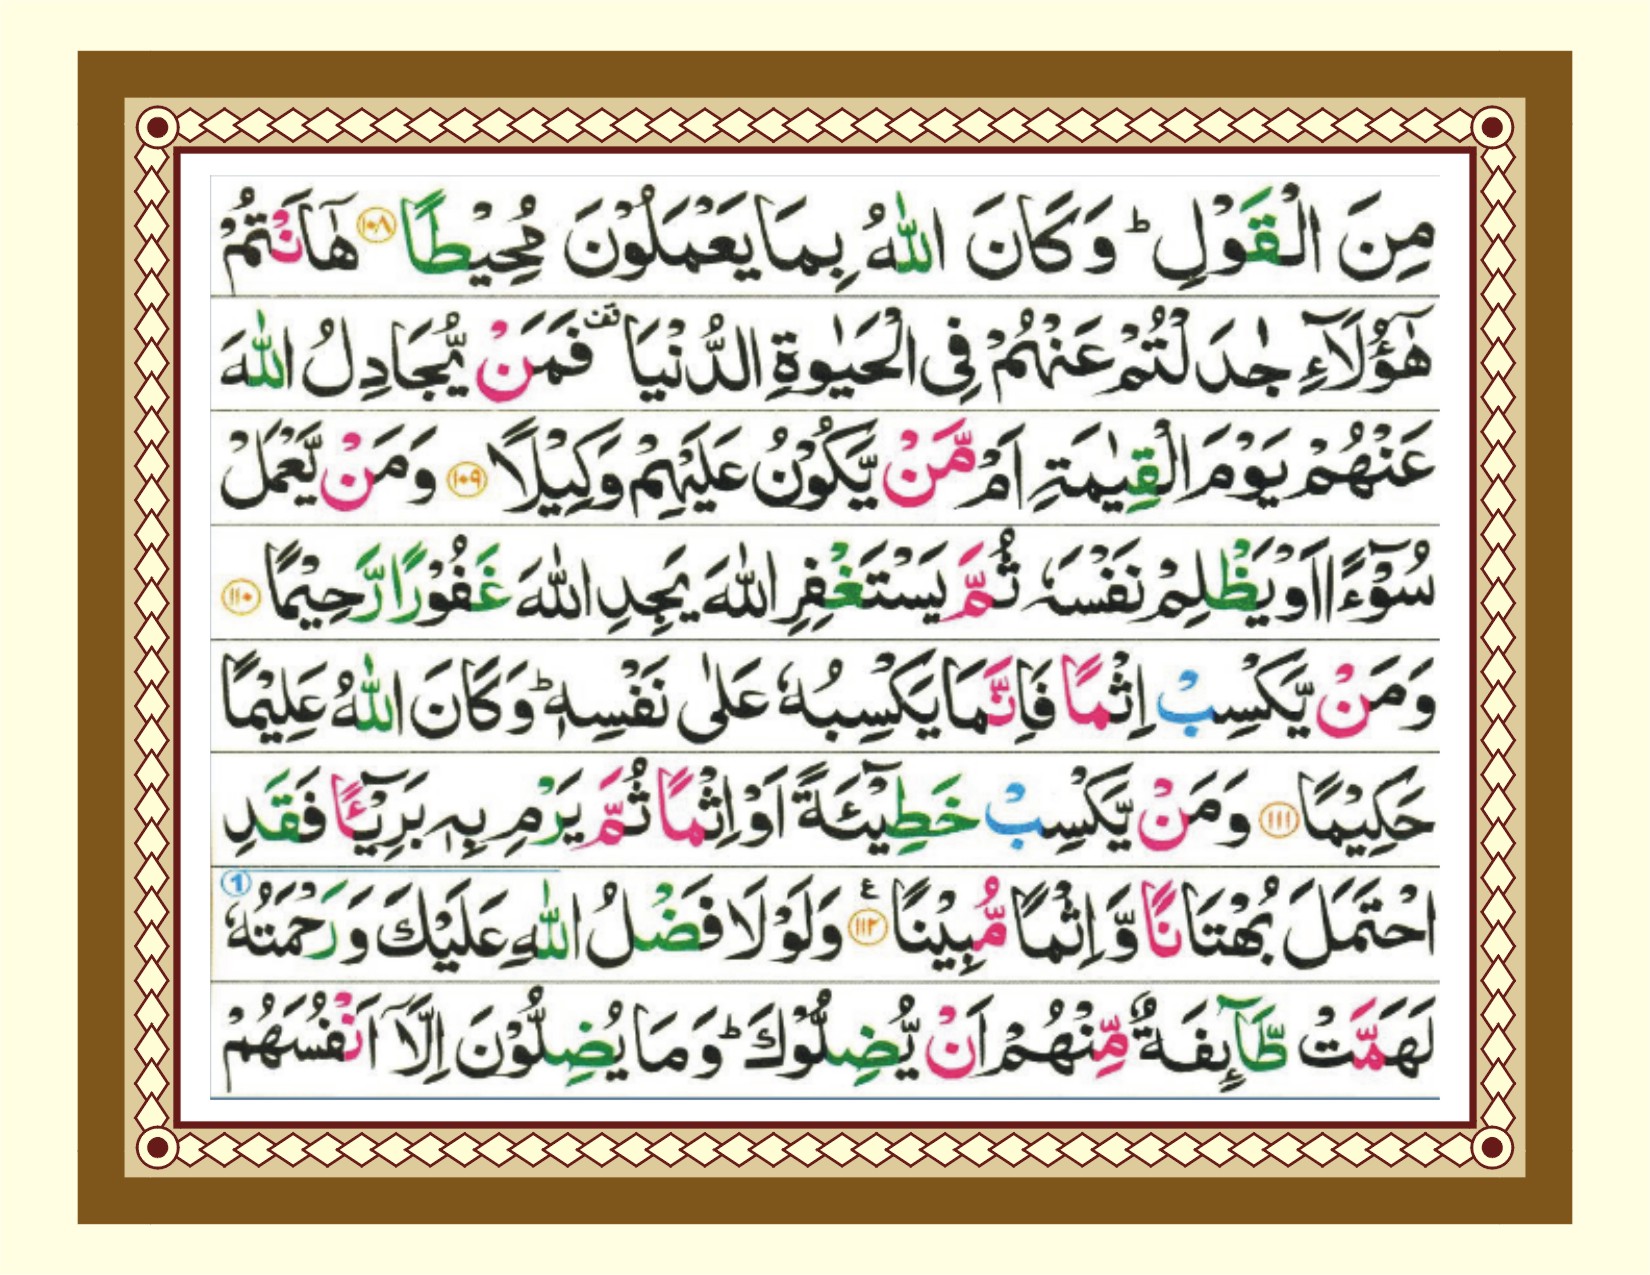 مِنَ الْقَوْلِ ؕ وَكَانَ اللّٰهُ بِمَا يَعْمَلُوْنَ مُحِيْطًا ﴿۱۰۸﴾ هٰۤاَنْتُمْ
هٰۤؤُلَآءِ جٰدَلْتُمْ عَنْهُمْ فِي الْحَيٰوةِ الدُّنْيَا قف فَمَنْ يُّجَادِلُ اللّٰهَ
عَنْهُمْ يَوْمَ الْقِيٰمَةِ اَمْ مَّنْ يَّكُوْنُ عَلَيْهِمْ وَكِيْلًا ﴿۱۰۹﴾ وَمَنْ يَّعْمَلْ
سُوْٓءًا اَوْ يَظْلِمْ نَفْسَهٗ ثُمَّ يَسْتَغْفِرِ اللّٰهَ يَجِدِ اللّٰهَ غَفُوْرًا رَّحِيْمًا ﴿۱۱۰﴾
وَمَنْ يَّكْسِبْ اِثْمًا فَاِنَّمَا يَكْسِبُهٗ عَلٰى نَفْسِهٖ ؕ وَكَانَ اللّٰهُ عَلِيْمًا
حَكِيْمًا ﴿۱۱۱﴾ وَمَنْ يَّكْسِبْ خَطِيْٓئَةً اَوْ اِثْمًا ثُمَّ يَرْمِ بِهٖ بَرِيْٓئًا فَقَدِ
احْتَمَلَ بُهْتَانًا وَّاِثْمًا مُّبِيْنًا ﴿۱۱۲﴾ ع وَلَوْلَا فَضْلُ اللّٰهِ عَلَيْكَ وَرَحْمَتُهٗ 1
لَهَمَّتْ طَّآئِفَةٌ مِّنْهُمْ اَنْ يُّضِلُّوْكَ ؕ وَمَا يُضِلُّوْنَ اِلَّاۤ اَنْفُسَهُمْ